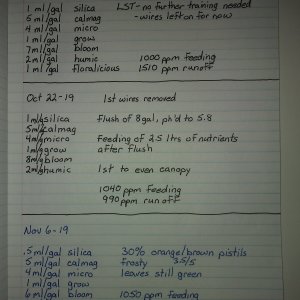 1 ml/gal silica LST - no further training needed
5 ml/gal calmag - wires left on for now
4 ml/gal micro
1 ml/gal grow
7 ml/gal bloom
2 ml/gal humic 1000 ppm feeding
1 ml/gal floralicious 1510 ppm runoff
Oct 22-19 1st wires removed
1 ml/g silica Flush of 8gal, ph'd to 5.8
5 ml/g calmag
4 ml/g micro Feeding of 2,5 ltrs of nutrients
1 ml/g grow after flush
8 ml/g bloom
2 ml/g humic 1st to even canopy
1040 ppm feeding
990 ppm run off
Nov 6-19
.5 ml/gal silica 30% orange/brown pistils
5 ml/gal calmag frosty 3.5/5
4 ml/gal micro leaves still green
1 ml/gal grow
6 ml/gal bloom 1050 ppm feeding